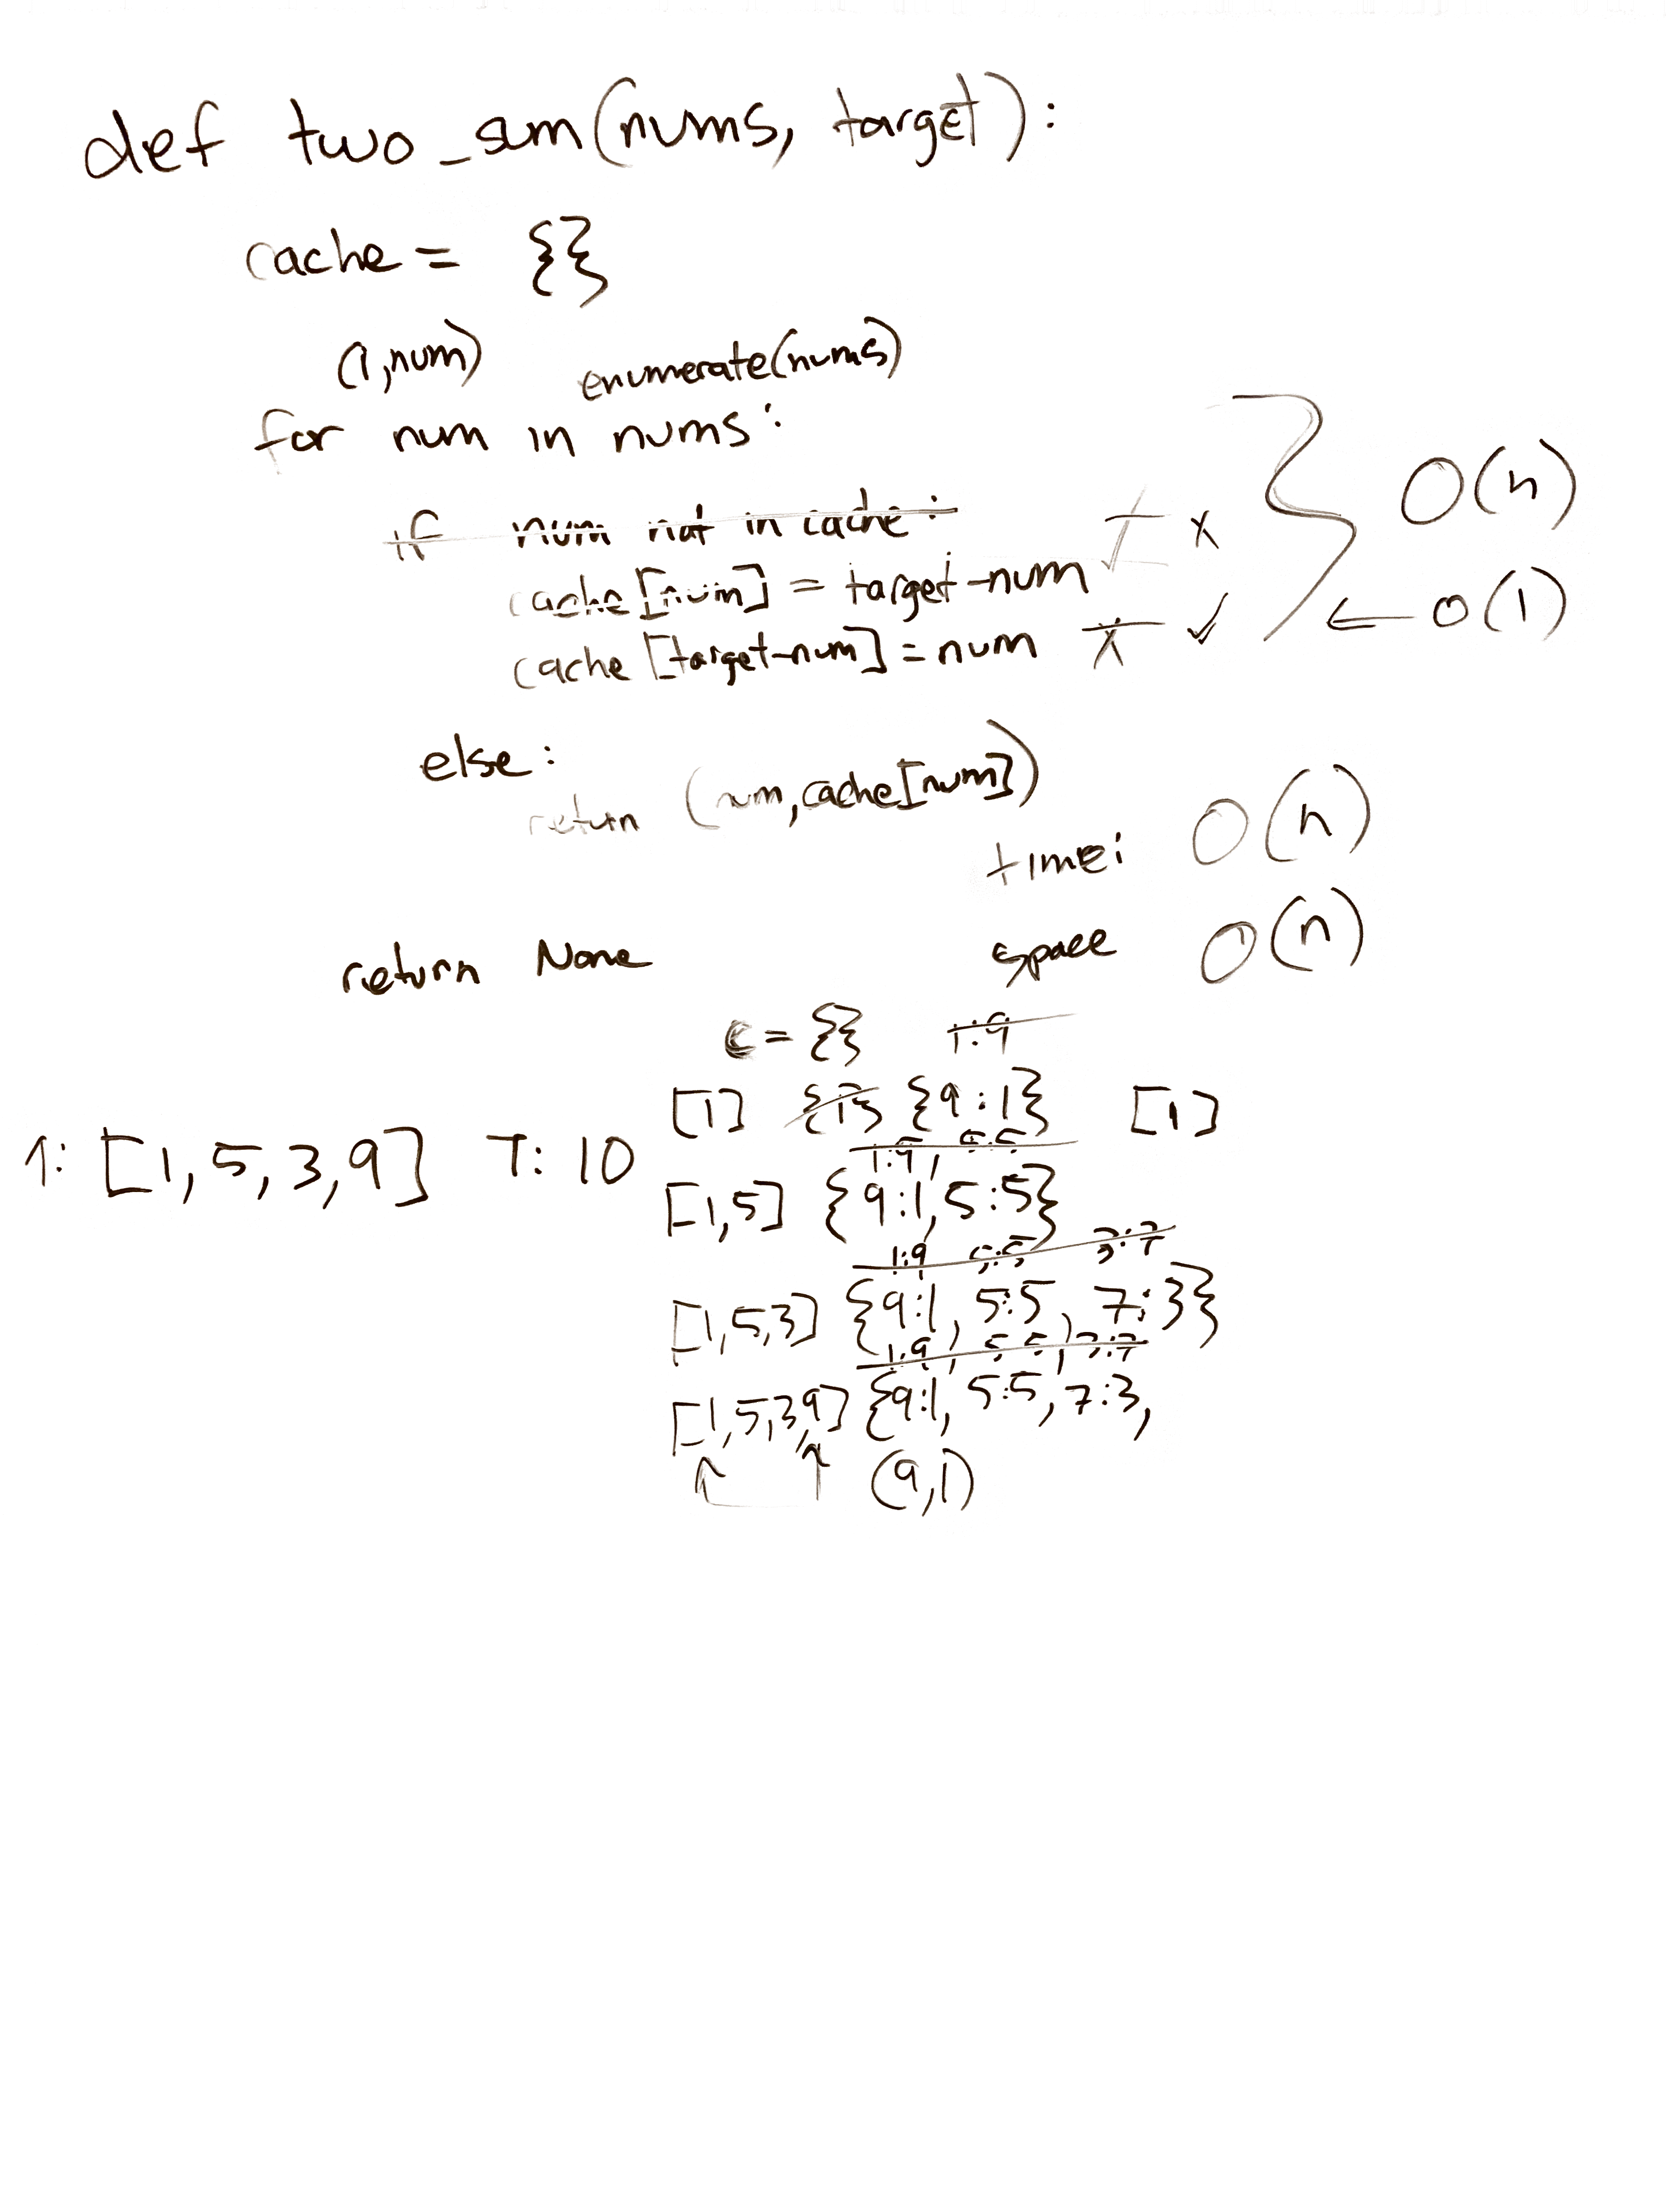 def two_sum(nums, target):
cache = {}
(1,num) enumerate(nums)
for num in nums:
if num not in cache:
cache[num] = target-num x
cache[target-num] = num x ✓
O(n)
← O(1)
else:
return (num, cache[num])
time: O(n)
return None space O(n)
c = {} 1:9
[1] {9:1} [1]
1:9, 5:5
1: [1,5,3,9] T: 10
[1,5] {9:1, 5:5}
1:9 5:5 3:7
[1,5,3] {9:1, 5:5, 7:3}
1:9, 5:5, 3:7
[1,5,3,9] {9:1, 5:5, 7:3,
(9,1)